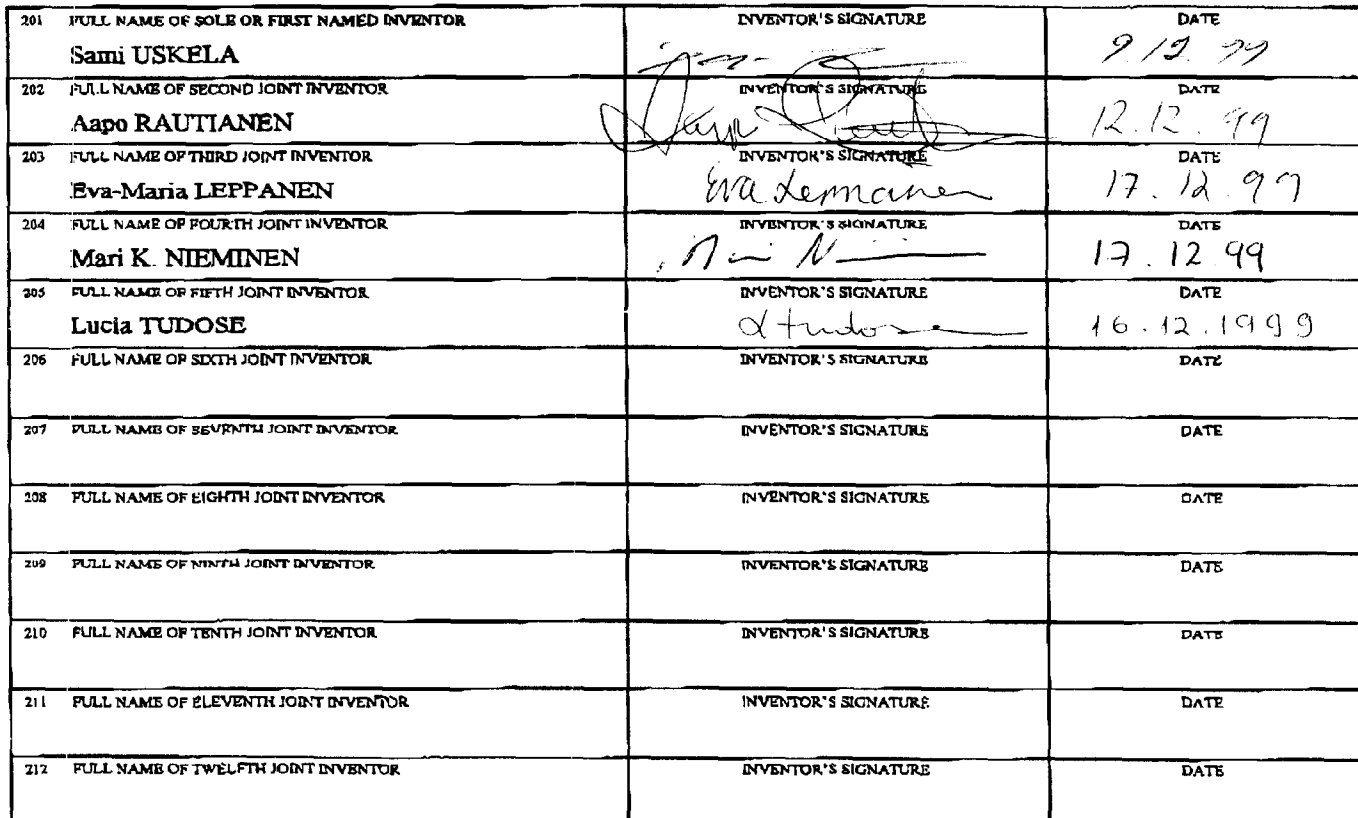 201 FULL NAME OF SOLE OR FIRST NAMED INVENTOR INVENTOR'S SIGNATURE DATE
Sami USKELA 9.12.99
202 FULL NAME OF SECOND JOINT INVENTOR INVENTOR'S SIGNATURE DATE
Aapo RAUTIANEN 12.12.99
203 FULL NAME OF THIRD JOINT INVENTOR INVENTOR'S SIGNATURE DATE
Eva-Maria LEPPANEN Eva Leppanen 17.12.99
204 FULL NAME OF FOURTH JOINT INVENTOR INVENTOR'S SIGNATURE DATE
Mari K. NIEMINEN 17.12.99
205 FULL NAME OF FIFTH JOINT INVENTOR INVENTOR'S SIGNATURE DATE
Lucia TUDOSE L tudose 16.12.1999
206 FULL NAME OF SIXTH JOINT INVENTOR INVENTOR'S SIGNATURE DATE
207 FULL NAME OF SEVENTH JOINT INVENTOR INVENTOR'S SIGNATURE DATE
208 FULL NAME OF EIGHTH JOINT INVENTOR INVENTOR'S SIGNATURE DATE
209 FULL NAME OF NINTH JOINT INVENTOR INVENTOR'S SIGNATURE DATE
210 FULL NAME OF TENTH JOINT INVENTOR INVENTOR'S SIGNATURE DATE
211 FULL NAME OF ELEVENTH JOINT INVENTOR INVENTOR'S SIGNATURE DATE
212 FULL NAME OF TWELFTH JOINT INVENTOR INVENTOR'S SIGNATURE DATE